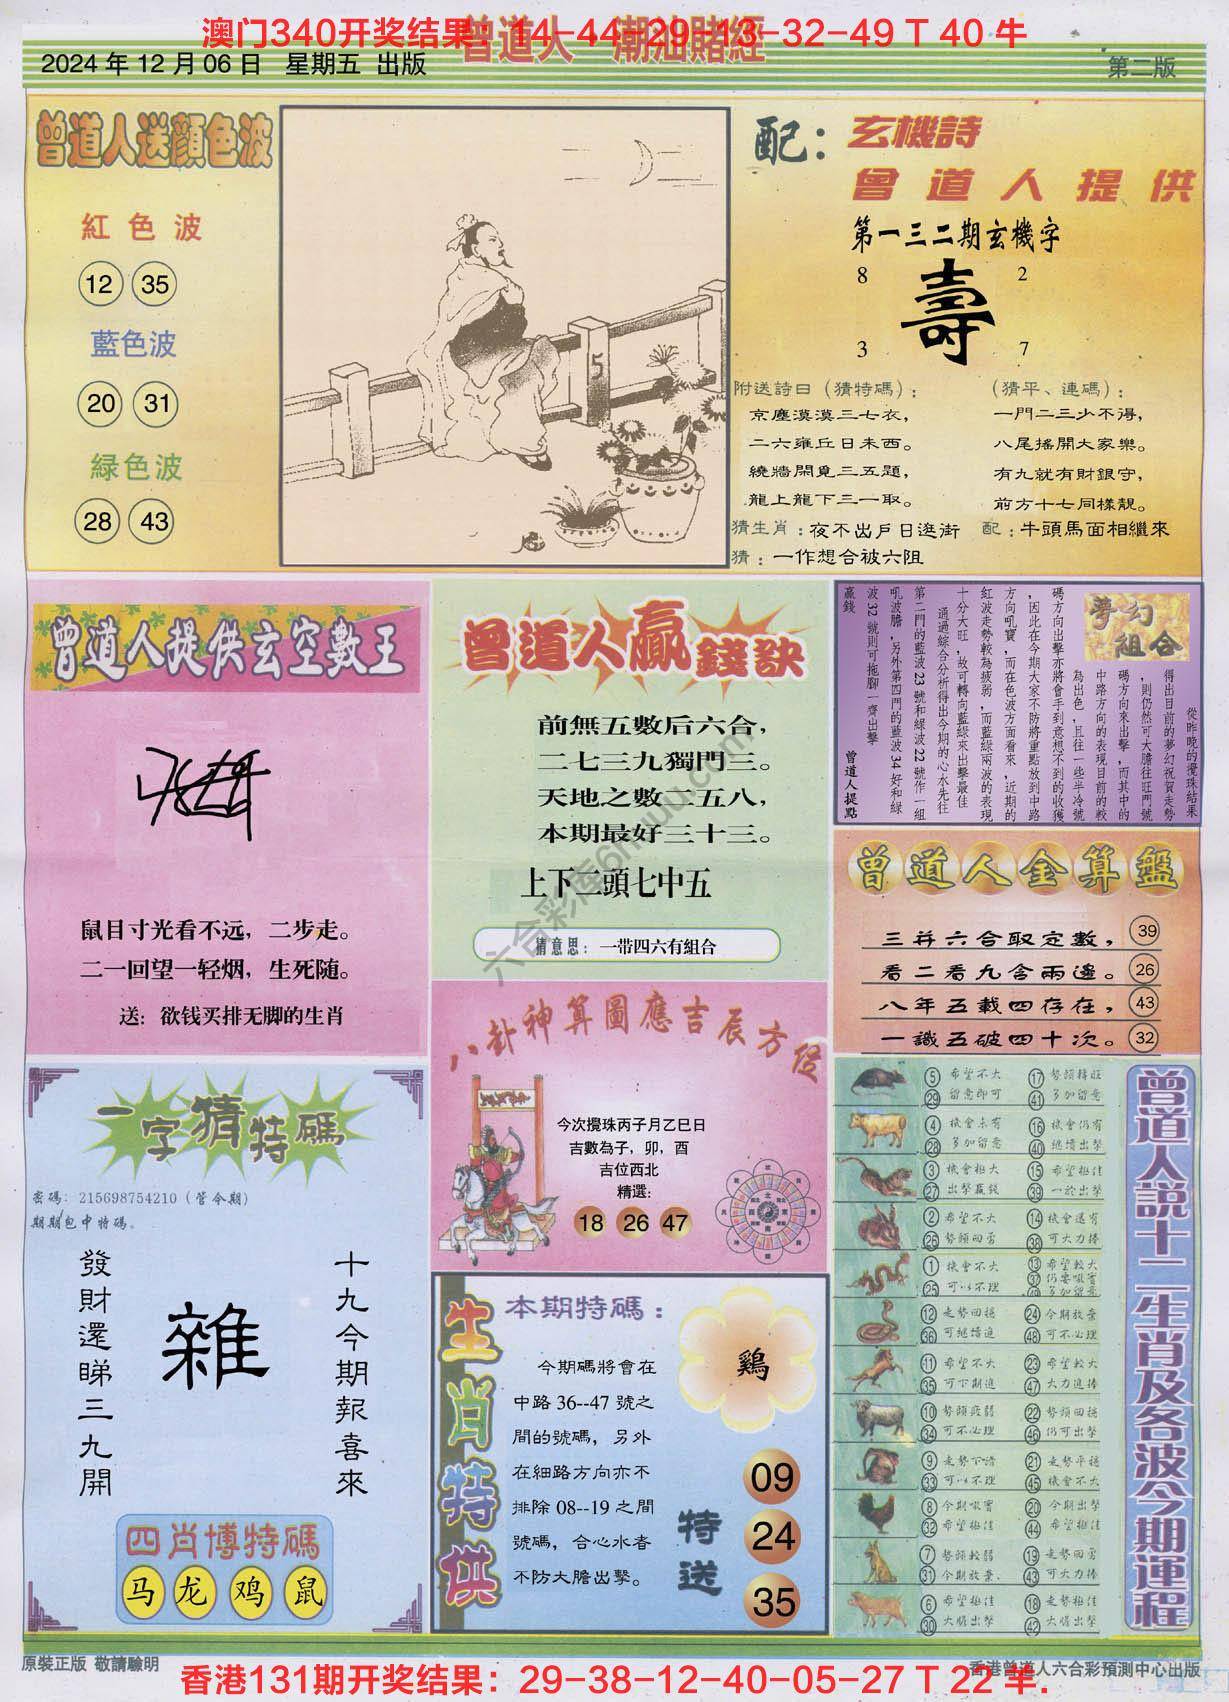 澳门340开奖结果：14-44-29-13-32-49 T 40 牛
曾道人 潮汕賭經
2024 年 12 月 06 日 星期五 出版
第二版
曾道人送顏色波
紅色波
12 35
藍色波
20 31
緑色波
28 43
5
配：
玄機詩
曾道人提供
第一三二期玄機字
8 2
壽
3 7
附送詩曰（猜特碼）：
京塵漠漠三七衣，
二六雍丘日未西。
繞牆開覓三五題，
龍上龍下三一取。
（猜平、連碼）：
一門二三少不得，
八尾搖開大家樂。
有九就有財銀守，
前方十七同樣靚。
猜生肖：夜不出戶日逛街
配：牛頭馬面相繼來
猜：一作想合被六阻
曾道人提供玄空數王
鼠目寸光看不远，二步走。
二一回望一轻烟，生死随。
送：欲钱买排无脚的生肖
曾道人贏錢訣
前無五數后六合，
二七三九獨門三。
天地之數二五八，
本期最好三十三。
上下二頭七中五
猜意思：一带四六有組合
夢幻組合
從昨晚的攪珠結果
得出目前的夢幻祝賀走勢
，則仍然可大膽往旺門號
碼方向來出擊，而其中的
中路方向的表現目前的較
為出色，且往一些半冷號
碼方向出擊亦將會手到意想不到的收獲
，因此在今期大家不防將重點放到中路
方向吼寶，而在色波方面看來，近期的
紅波走勢較為疲弱，而藍綠兩波的表現
十分大旺，故可轉向藍綠來出擊最佳
通過綜合分析得出今期的心水先往
第二門的藍波 23 號和綠波 22 號作一組
吼波膽，另外第四門的藍波 34 好和綠
波 32 號則可拖腳一齊出擊
贏錢
曾道人提點
曾道人金算盤
三并六合取定數， 39
看二看九含兩邊。 26
八年五載四存在， 43
一識五破四十次。 32
一字猜特碼
密碼：215698754210（管今期）
期期包中特碼。
十九今期報喜來
雜
發財還睇三九開
四肖博特碼
马 龙 鸡 鼠
八卦神算圖應吉辰方位
今次攪珠丙子月乙巳日
吉數為子，卯，酉
吉位西北
精選:
18 26 47
生肖特供
本期特碼：
今期碼將會在
中路 36--47 號之
間的號碼，另外
在細路方向亦不
排除 08--19 之間
號碼，合心水者
不防大膽出擊。
鷄
特送
09
24
35
曾道人説十二生肖及各波今期運程
5 希望不大 17 勢頭轉旺
29 留意即可 41 多加留意
4 機會未有 16 機會仍有
28 多加留意 40 繼續出擊
3 機會極大 15 希望極佳
27 出擊贏錢 39 一於出擊
2 希望不大 14 機會還有
26 勢頭回勇 38 可大力捧
1 機會不大 13 希望較大
25 可以不理
12 走勢回穩 24 今期放棄
36 可繼續追 48 可不必理
11 希望不大 23 希望較大
35 可下期追 47 大力追捧
10 勢頭疲弱 22 勢頭回穩
34 可不必理 46 仍可出擊
9 走勢下滑 21 走勢平穩
33 可以不理 45 機會不大
8 今期吼實 20 今期出擊
32 希望極佳 44 希望極佳
7 勢頭較弱 19 走勢回勇
31 今期放棄. 43 可大力捧
6 希望極佳 18 走勢極佳
30 大膽出擊 42 大膽出擊
六合彩库6huu.com
原裝正版 敬請驗明
香港曾道人六合彩預測中心出版
香港131期开奖结果：29-38-12-40-05-27 T 22 羊.